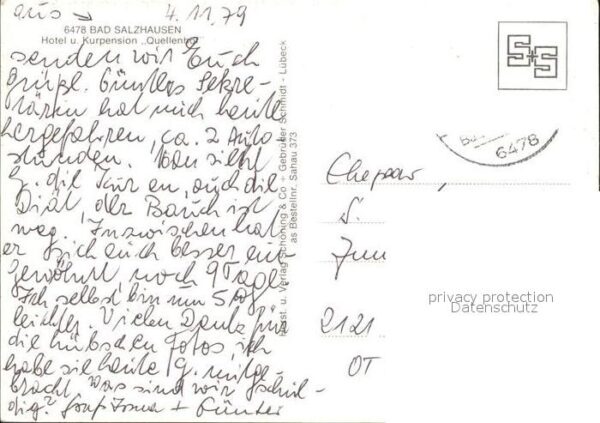 aus 4.11.79
6478 BAD SALZHAUSEN
Hotel u. Kurpension „Quellenhof“
senden wir Euch
Grüße. Günters Sekre-
tärin hat mich heute
hergefahren, ca. 2 Auto
stunden. Man sieht
G. die Kur an, auch die
Diät, der Bauch ist
weg. Inzwischen hat
er sich auch besser ein-
gewöhnt, noch 9 Tage.
Ich selbst bin nun 5
leichter. Vielen Dank für
die hübschen Fotos, ich
habe sie heute G. mitge-
bracht. Was sind wir schul-
dig? + Günter
Herst. u. Verlag Schöning & Co + Gebrüder Schmidt - Lübeck
as Bestellnr. Sahau 373
S+S
6478
Ehepaar
2121
OT
privacy protection
Datenschutz